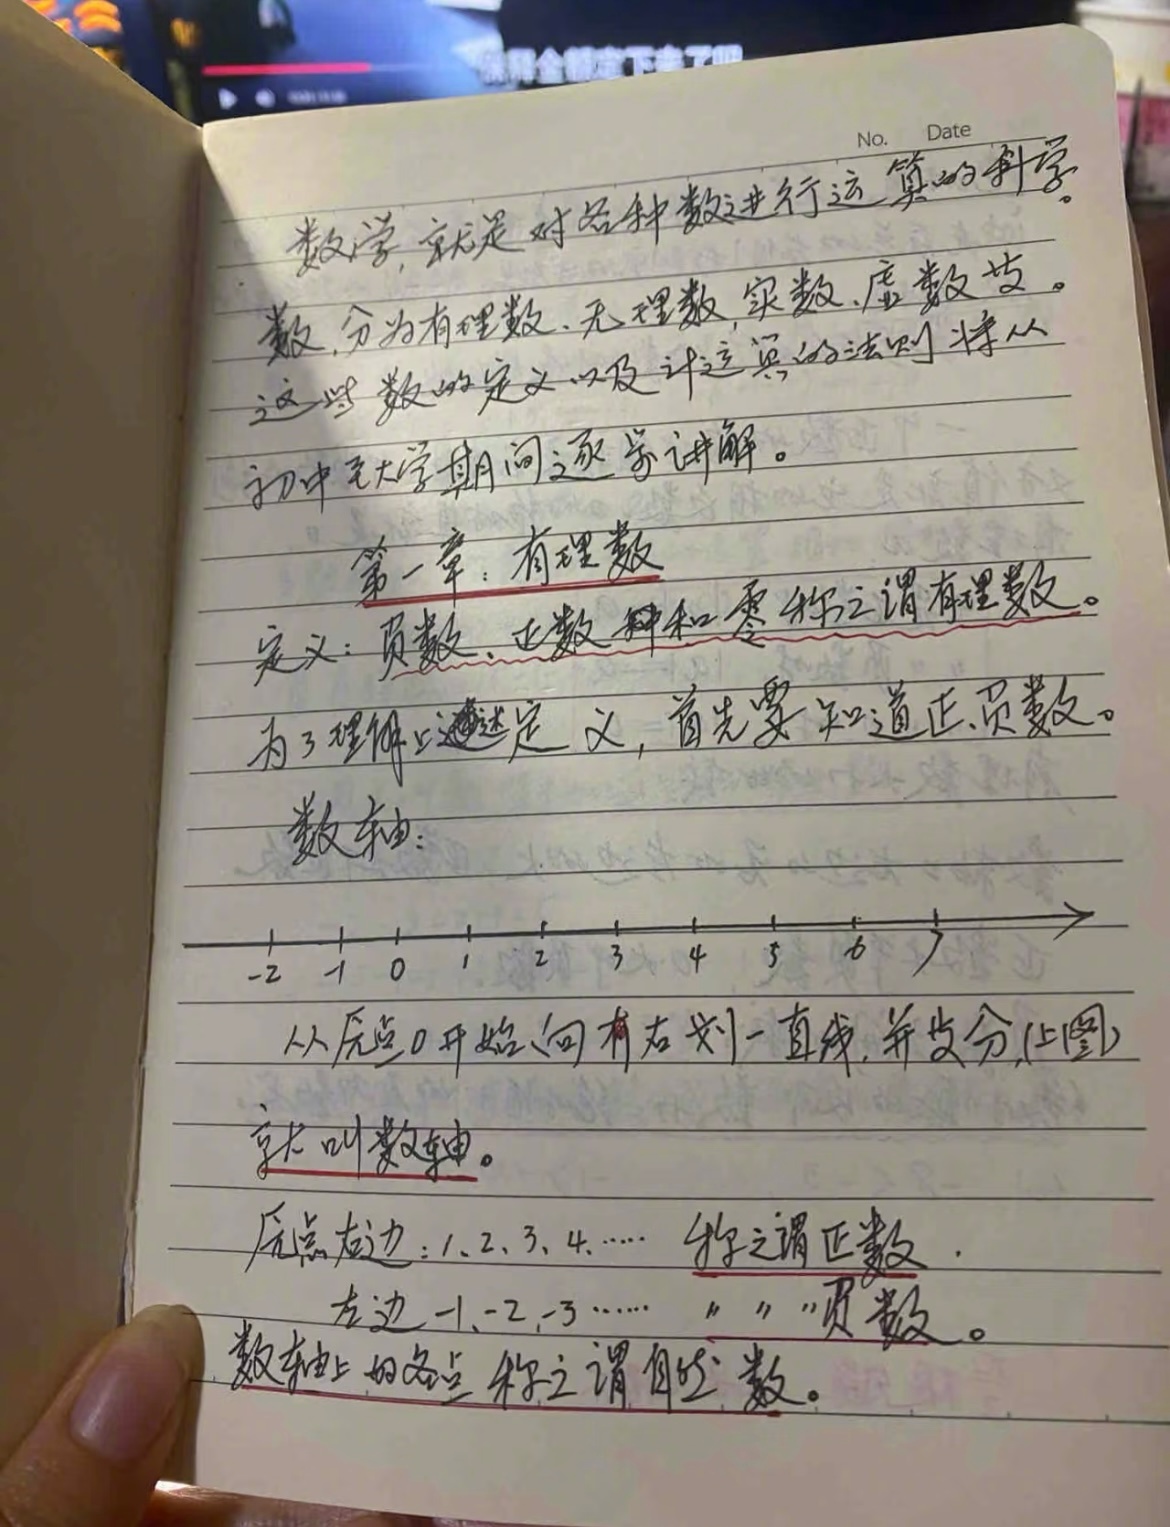 No. Date
数学,就是对各种数进行运算的科学。
数,分为有理数、无理数,实数、虚数等。
这些数的定义以及计运算的法则将从
初中至大学期间逐步讲解。
第一章:有理数
定义:负数、正数和零称之谓有理数。
为了理解上述定义,首先要知道正、负数。
数轴:
-2 -1 0 1 2 3 4 5 6 7
从原点0开始、向右划一直线,并等分,(上图)
就叫数轴。
原点右边:1、2、3、4、…… 称之谓正数.
左边-1、-2、-3…… 〃 〃 〃负数。
数轴上的各点称之谓自然数。